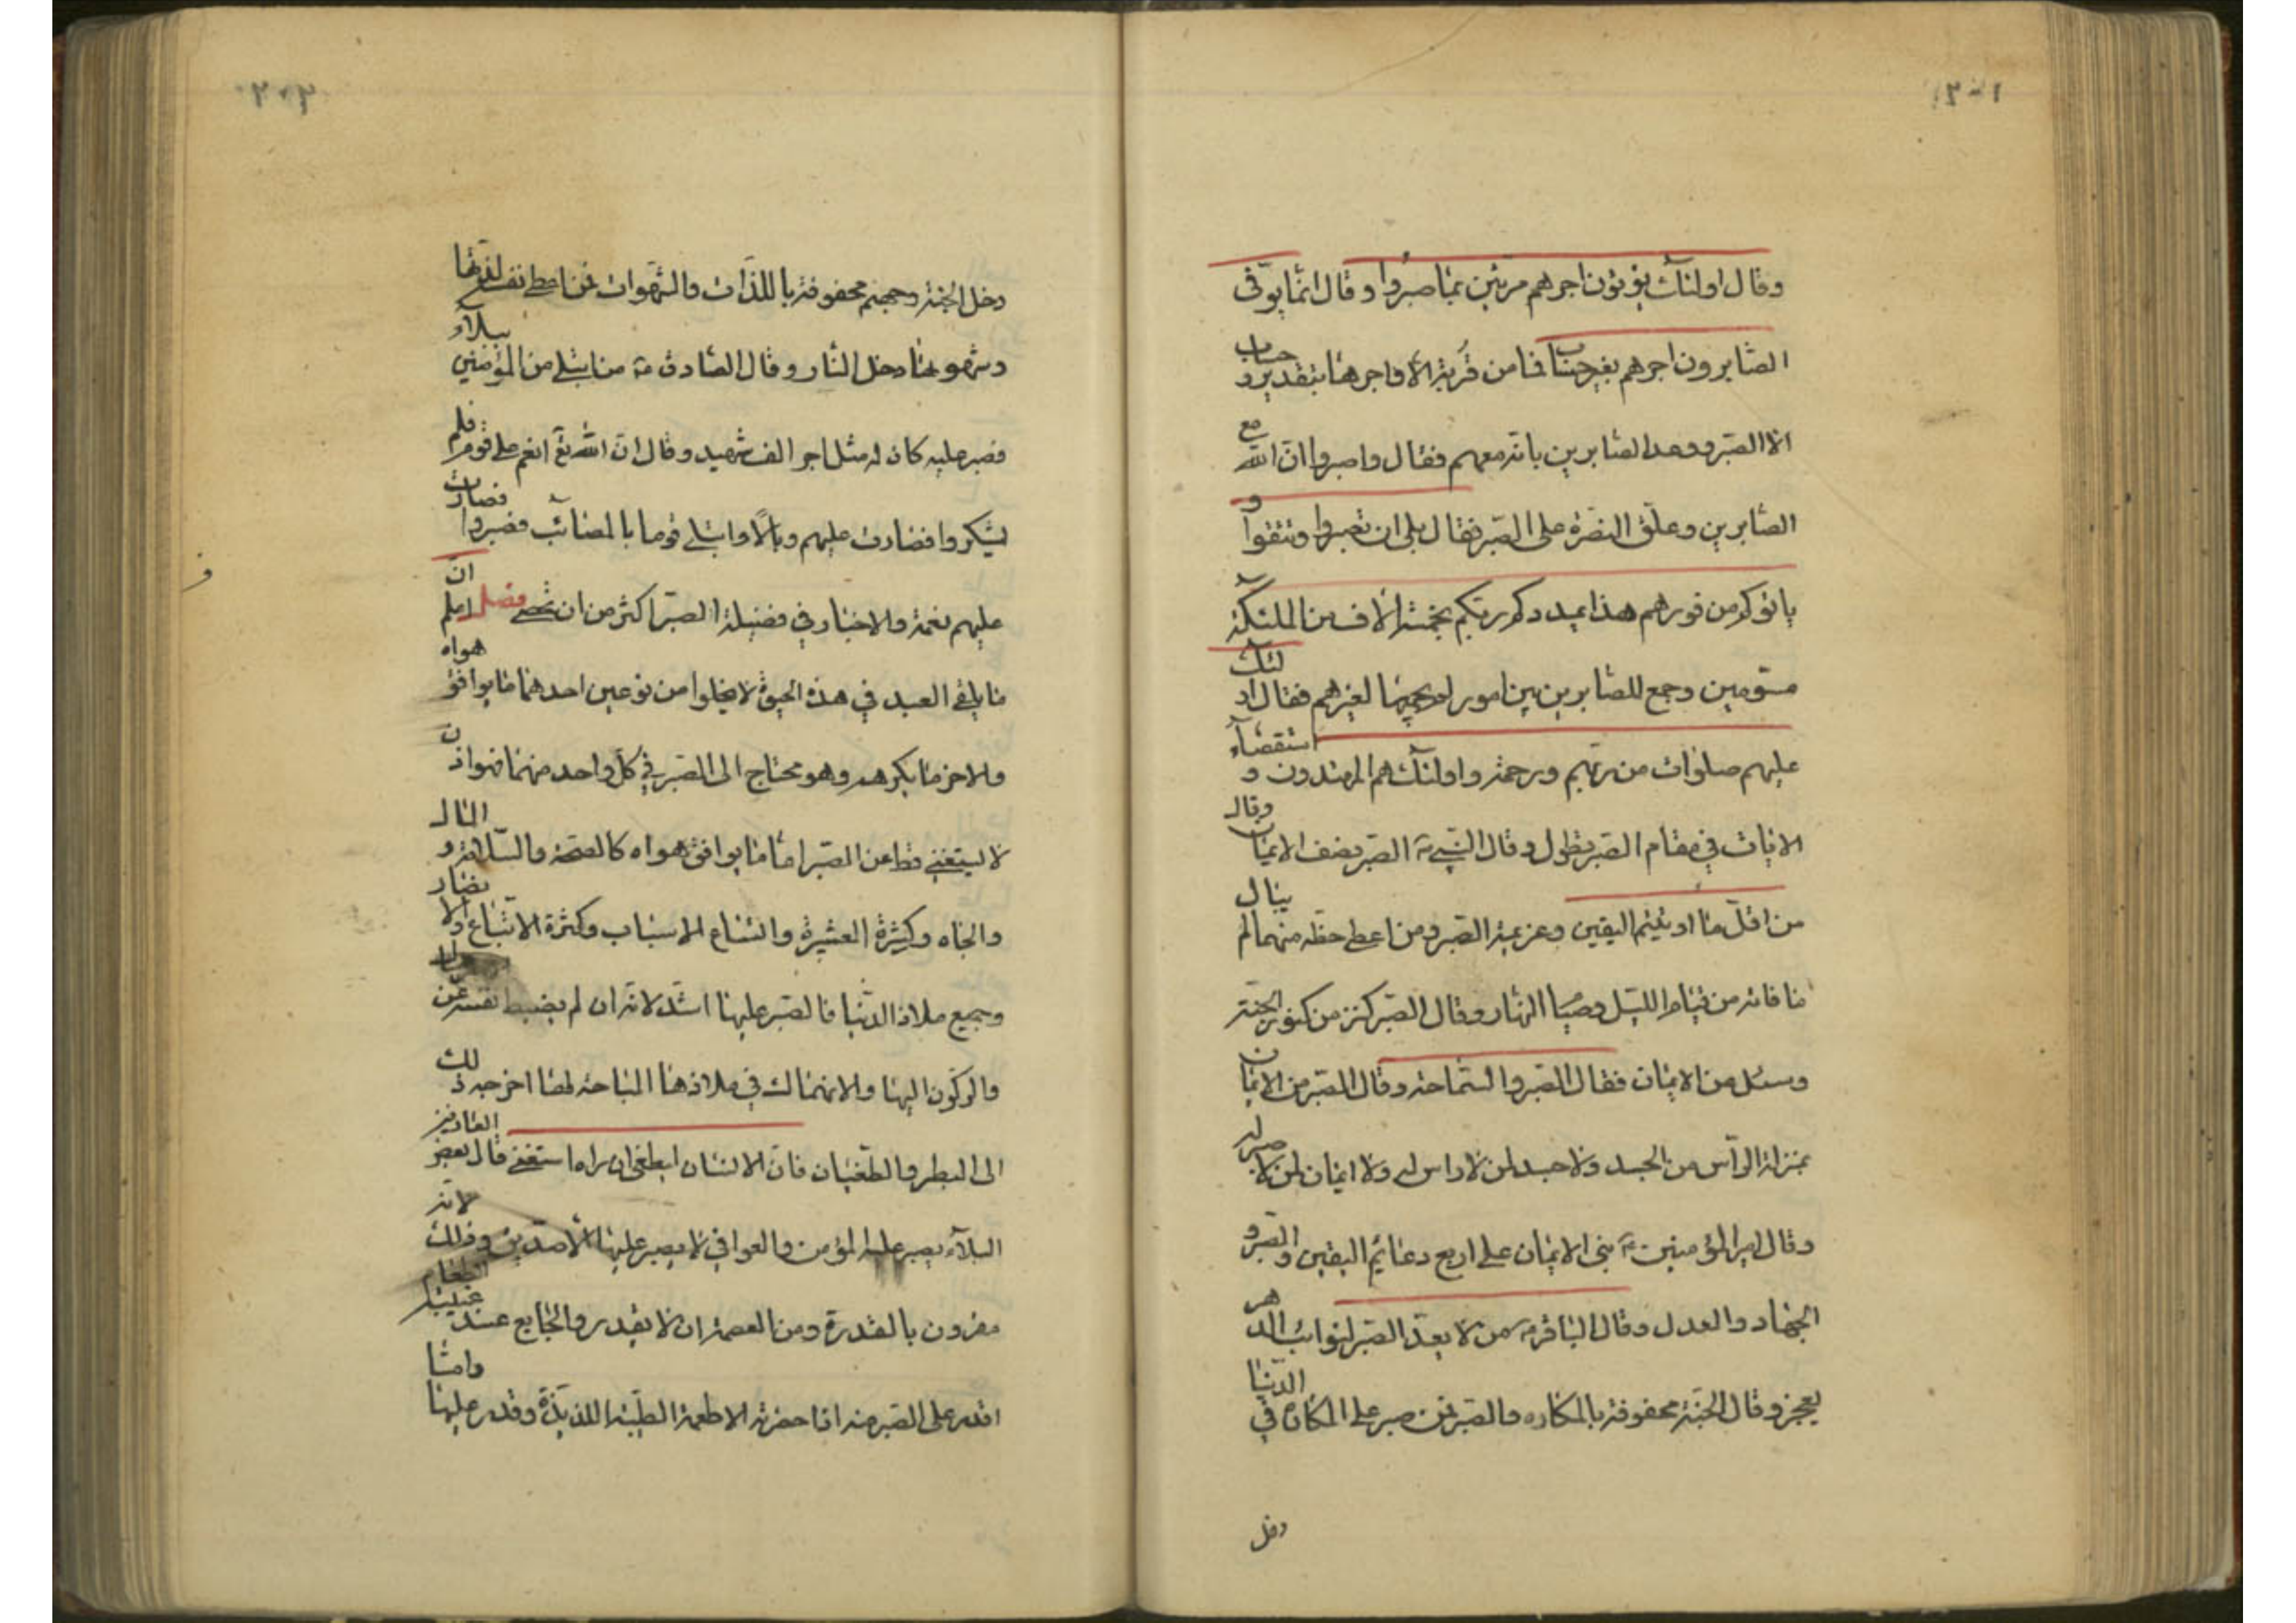 ٢٠١
وقال اولئك يؤتون اجرهم مرتين بما صبروا وقال انما يوفى
الصابرون اجرهم بغير حساب فما من قربة الا واجرها بتقدير وحساب
الا الصبر ووعد الصابرين بانه معهم فقال واصبروا ان الله مع
الصابرين وعلق النصرة على الصبر فقال بلى ان تصبروا وتتقوا و
ياتوكم من فورهم هذا يمددكم ربكم بخمسة آلاف من الملئكة
مسومين وجمع للصابرين بين امور لم يجمعها لغيرهم فقال اولئك
عليهم صلوات من ربهم ورحمة واولئك هم المهتدون و استقصآء
الايات في مقام الصبر يطول وقال النبي ص الصبر نصف الايمان وقال
من اقل ما اوتيتم اليقين وعزيمة الصبر ومن اعطى حظه منهما لم ينال
ما فاته من قيام الليل وصيام النهار وقال الصبر كنز من كنوز الجنة
وسئل عن الايمان فقال الصبر والسماحة وقال الصبر من الايمان
بمنزلة الرأس من الجسد ولا جسد لمن لا راس له ولا ايمان لمن لا صبر له
وقال امير المؤمنين ع بنى الايمان على اربع دعائم اليقين والصبر و
الجهاد والعدل وقال الباقر ع من لا يعد الصبر لنوائب الدهر
يعجز وقال الجنة محفوفة بالمكاره والصبر فمن صبر على المكاره في الدنيا
دخل
٢٠٢
دخل الجنة وجهنم محفوفة باللذات والشهوات فمن اعطى نفسه لذتها
وشهوتها دخل النار وقال الصادق ع من ابتلى من المؤمنين ببلآء
فصبر عليه كان له مثل اجر الف شهيد وقال ان الله تع انعم على قوم فلم
يشكروا فصارت عليهم وبالا وابتلى قوما بالمصائب فصبروا فصارت
عليهم نعمة والاخبار في فضيلة الصبر اكثر من ان تحصى فصل اعلم ان
ما يلقى العبد في هذه الحيوة لا يخلوا من نوعين احدهما ما يوافق هواه
والاخر ما يكرهه وهو محتاج الى الصبر في كل واحد منهما فهو اذن
لا يستغنى قط عن الصبر اما ما يوافق هواه كالصحة والسلامة و المال
والجاه وكثرة العشيرة واتساع الاسباب وكثرة الاتباع والانصار
وجميع ملاذ الدنيا فالصبر عليها اشد لانه ان لم يضبط نفسه عن
والركون اليها والانهماك في ملاذها المباحة لها اخرجه ذلك
الى البطر والطغيان فان الانسان ليطغى ان راه استغنى قال بعض العارفين
البلآء يصبر عليه المؤمن والعوافي لا يصبر عليها الا صديق وذلك لانه
مقرون بالقدرة ومن العصمة ان لا يقدر والجايع عند غيبة الطعام
اقدر على الصبر منه اذا حضرته الاطعمة الطيبة اللذيذة وقدر عليها واما